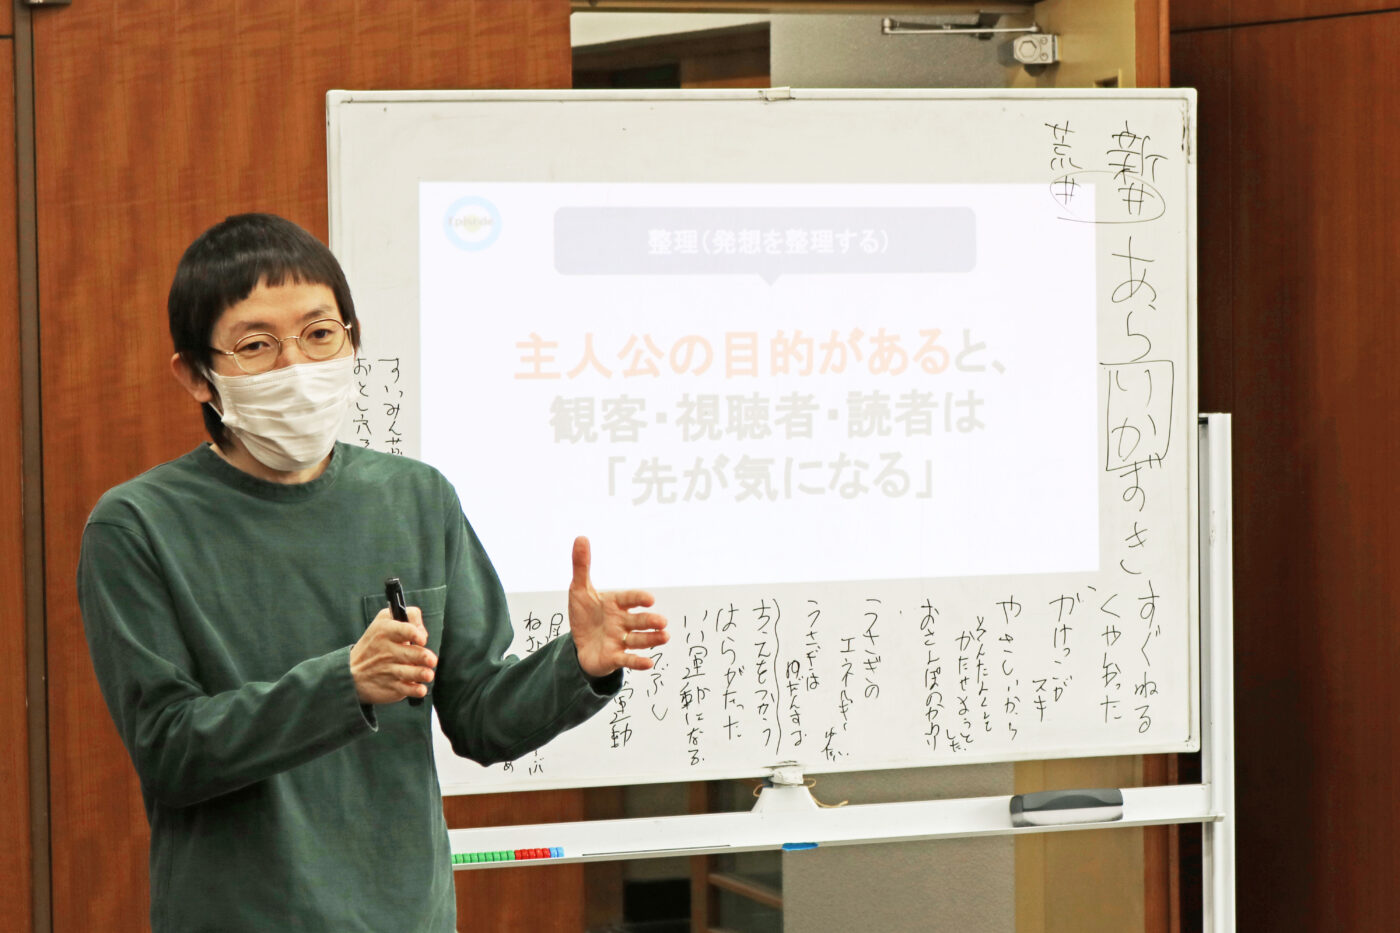 Episode
整理（発想を整理する）
主人公の目的があると、
観客・視聴者・読者は
「先が気になる」
新井
荒井
あらいかぎのき
すぐねる
くやしかった
がけっこが
スキ
やさしいから
かたせようと
した
おさんぽのかわり
うさぎの
エネルギー
うさぎは
ゆだんする
ちえをつかう
はらがたった
いい運動になる
運動
すいみん
おとし穴